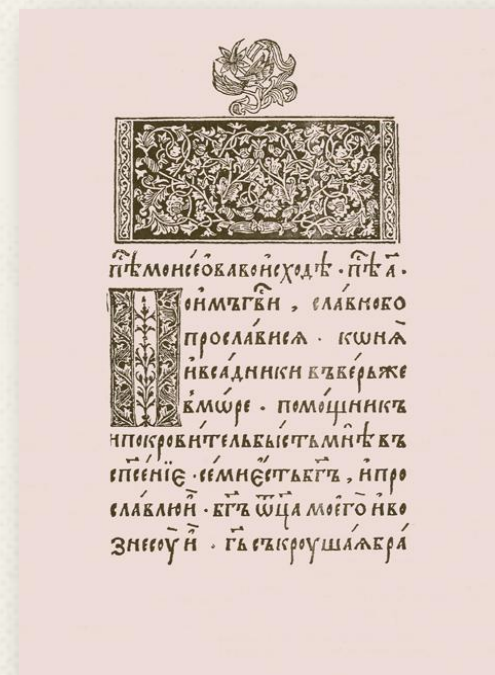 пѣ҃ моисеѡва воисходѣ · пѣ҃ а҃ ·
Поимъ гв҃и , сла́вно бо
просла́вися · кѡня̀
и҆ вса́дники въве́рьже
в мо́ре · помо́щникъ
и҆ покрови́тель бы́сть мнѣ̀ въ
сп҃се́нїе · се́ мн є҆́сть бг҃ъ , и҆ про
сла́влю и҆̀ · бг҃ъ ѿц҃а моего̀ и҆ во
знесоу̀ и҆̀ · гь҃ съкроуша́я бра́